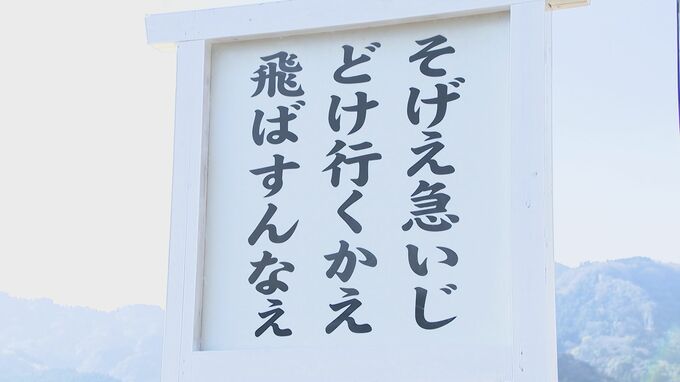 そげえ急いじ
どけ行くかえ
飛ばすんなえ